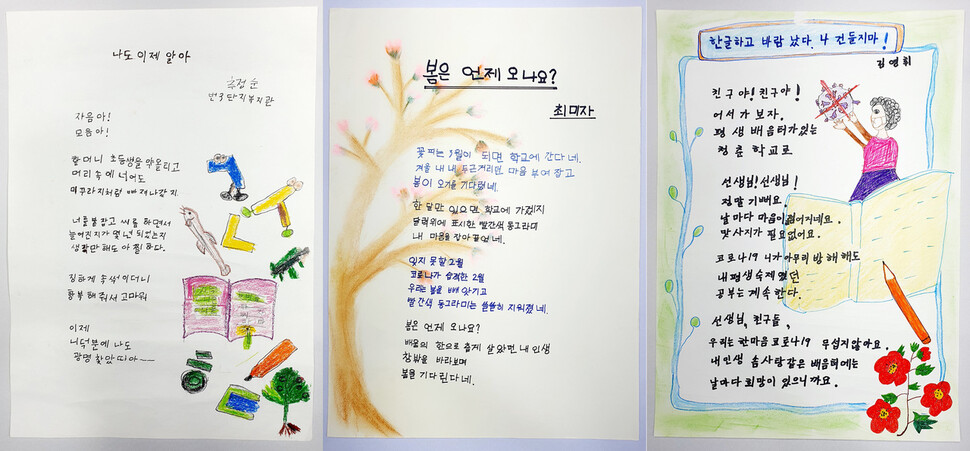 나도 이제 알아
추정순
번동단지복지관
자음아!
모음아!
할머니 초등생을 약올리고
머리속에 넣어도
미꾸라지처럼 빠져나갔지
너를 붙잡고 씨름 하면서
늘어진지가 몇년 되었는지
생각만해도 아찔하다.
징하게 송석이더니
공부해줘서 고마워
이제
니덕분에 나도
광명 찾았띠아
봄은 언제 오나요?
최미자
꽃피는 3월이 되면 학교에 간다네.
겨울 내내 두근거리던 마음 부여잡고
봄이 오기를 기다렸네.
한 달만 있으면 학교에 가겠지
달력위에 표시한 빨간색 동그라미
내 마음을 잡아끌었네.
잊지 못할 2월
코로나가 습격한 2월
우리는 봄을 빼앗기고
빨간색 동그라미는 쓸쓸히 지워졌네.
봄은 언제 오나요?
배움의 한으로 춥게 살았던 내 인생
창밖을 바라보며
봄을 기다린다네.
한글하고 바람 났다. 나 건들지마!
김영휘
친구야! 친구야!
어서 가 보자.
평생 배움터가 있는
청춘 학교로
선생님! 선생님!
정말 기뻐요.
날마다 마음이 젊어지네요.
맛사지가 필요없어요.
코로나19 니가 아무리 방해 해도
내 평생 숙제였던
공부는 계속 한다.
선생님, 친구들,
우리는 한마음 코로나19 무섭지 않아요.
내 인생 솜사탕같은 배움터에는
날마다 희망이 있으니까요.